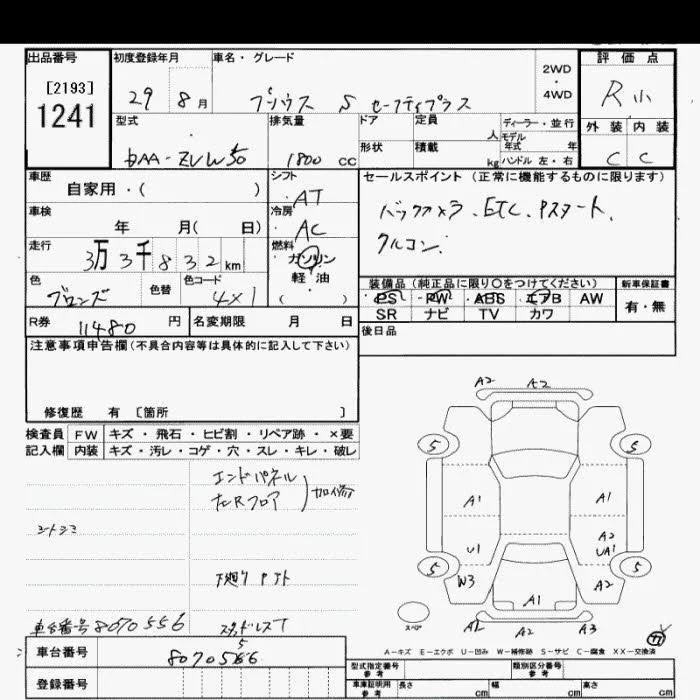 出品番号
[2193]
1241
初度登録年月
29 8月
車名・グレード
プリウス S セーフティプラス
2WD
・
4WD
評価点
R小
外装 内装
C C
型式
DAA-ZVW50
排気量
1800 cc
ドア
形状
定員
人
積載
kg
ディーラー・並行
モデル
年式 年
ハンドル 左・右
車歴
自家用・( )
シフト
AT
セールスポイント (正常に機能するものに限ります)
バックカメラ、ETC、Pスタート、
クルコン
車検
年 月( 日)
冷房
AC
走行
3万3千832km
燃料
ガソリン
軽・油
( )
色
ブロンズ
色替
色コード
4X1
装備品 (純正品に限り○をつけてください)
PS RW ABS エアB AW
SR ナビ TV カワ
新車保証書
有・無
R券
11480円
名変期限 月 日
後日品
注意事項申告欄(不具合内容等は具体的に記入して下さい)
修復歴 有 [箇所 ]
検査員
記入欄
FW キズ・飛石・ヒビ割・リペア跡・×要
内装 キズ・汚レ・コゲ・穴・スレ・キレ・破レ
エンドパネル
左Rフロア
加修
シートシミ
下廻り
車台番号8070556
スタッドレスT
車台番号
8070556
5
登録番号
A2 A2
5 5
A1 A1
U1 A2
UA1
5 5
W3 A2
A1
A1 A2 A3
スペア
A-キズ E-エクボ U-凹み W-補修跡 S-サビ C-腐食 XX-交換済
型式指定番号
参考
類別区分番号
参考
車庫証明用
参考
長さ cm
幅 cm
高さ cm